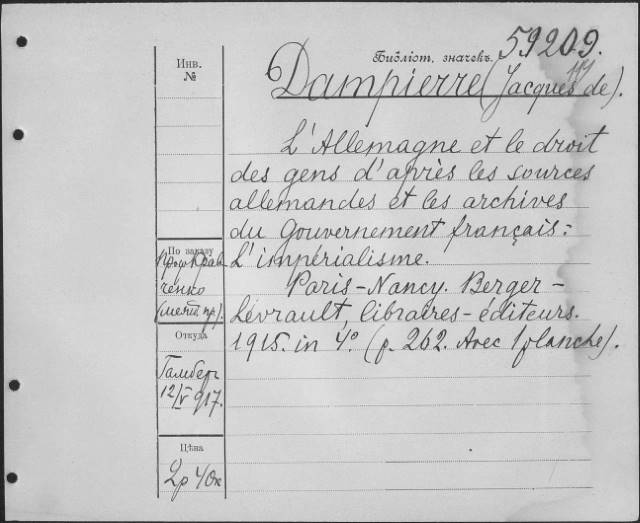 Инв.
№
Библіот. значекъ.
59209.
Dampierre (Jacques de).
L'Allemagne et le droit
des gens d'après les sources
allemandes et les archives
du Gouvernement français:
L'impérialisme.
Paris-Nancy. Berger-
Levrault, libraires-éditeurs.
1915. in 4º. (p. 262. Avec 1 planche).
По заказу
проф Крав
ченко
Откуда
Гамбер
12/V 917.
Цѣна
2р 40к